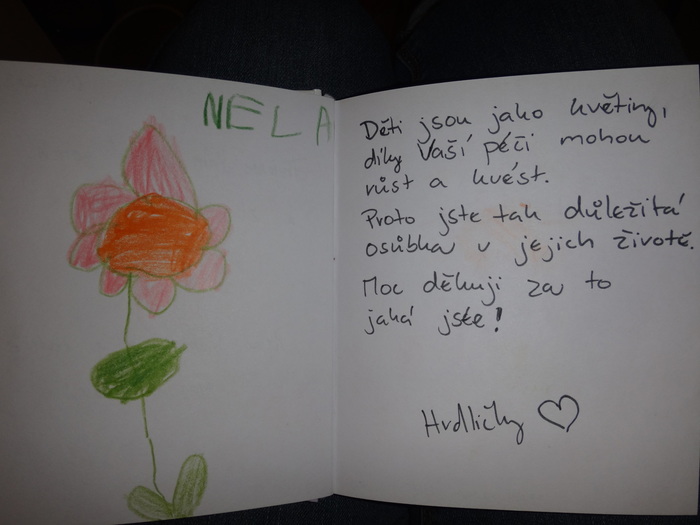 NELA
Děti jsou jako květiny,
díky Vaší péči mohou
růst a kvést.
Proto jste tak důležitá
osůbka v jejich životě.
Moc děkuji za to
jaká jste!
Hrdličky ♡